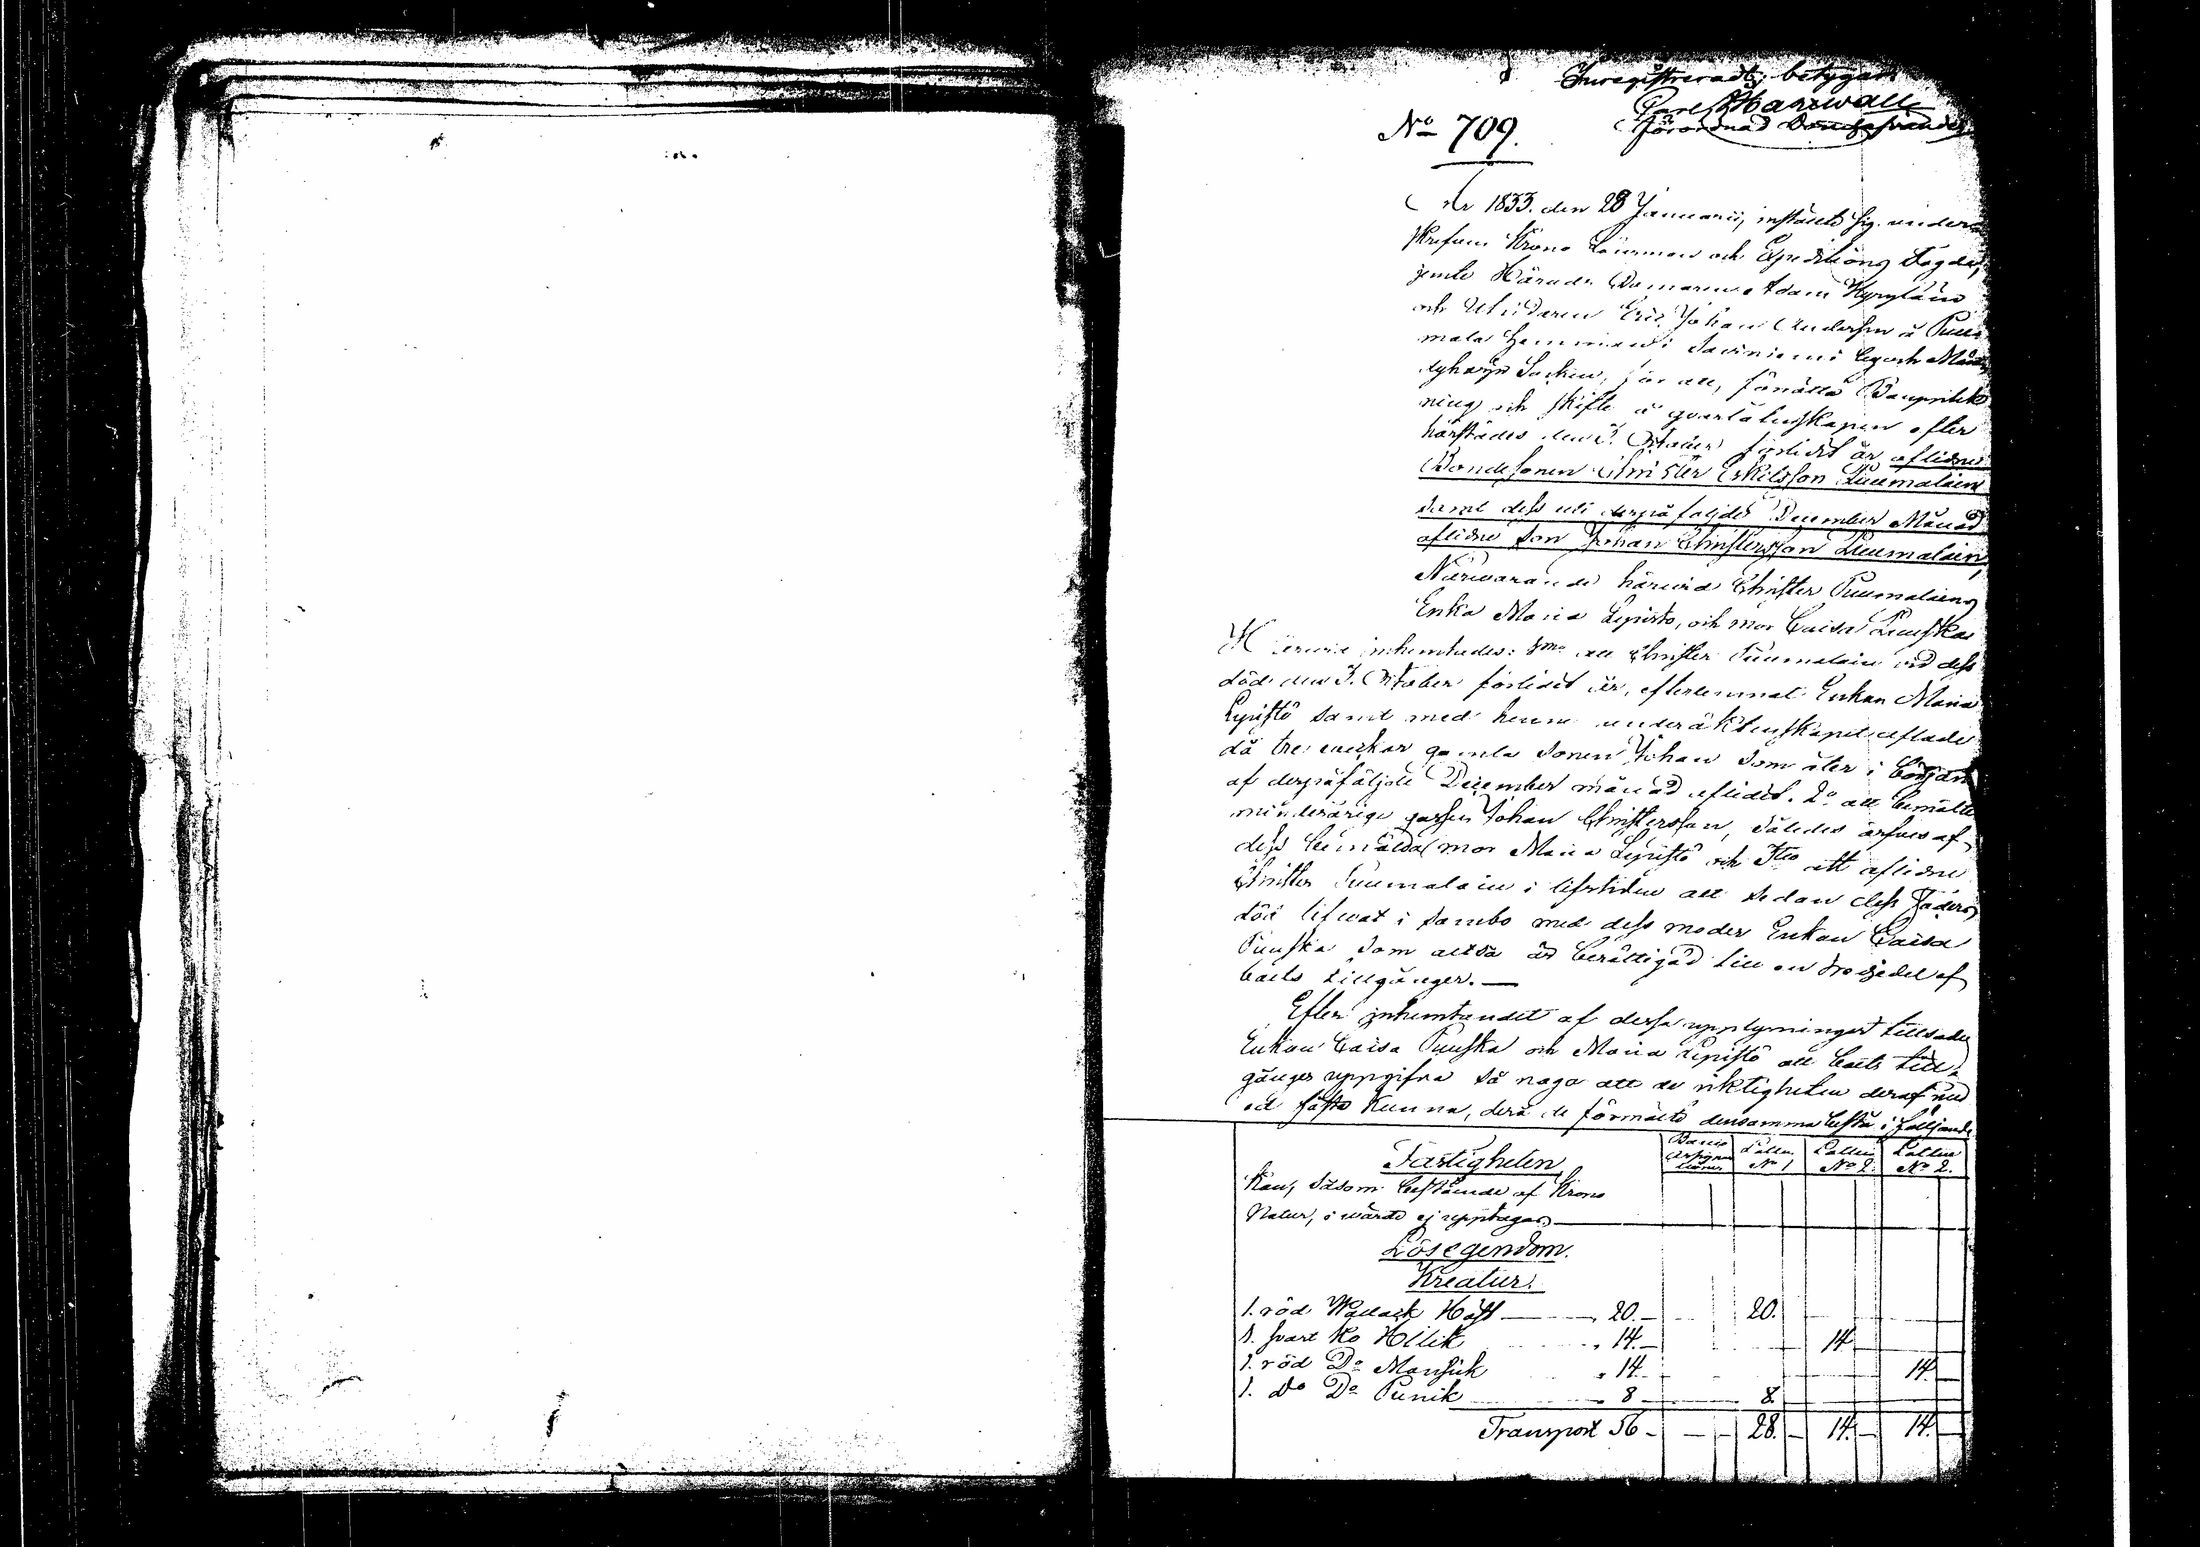 Inregistreradt, betygar
Carl Harwall
förordnad Domhafvande
No 709.
År 1833. den 28 Januarii, instälte sig under-
skrefven Krono Länsman och Expeditions Fogde,
jemte Härads Domaren Adam Hyryläin
och Utridaren Eric Johan Andersson å Puu-
mala Hemman i Saviniemi by och
Socken, för att, förrätta Bouppteck-
ning och skifte å qvarlåtenskapen efter
härstädes den 3. October förlidet år aflidne
Bondesonen Christer Eskilsson Puumalain
samt dess uti derpåföljde December Månad
aflidne Son Johan Christersson Puumalain,
Närvarande härvid Christer Puumalains
Enka Maria Lepistö, och mor Caisa Puuska
Härvid inhemtades: 1mo att Christer Puumalain vid dess
död den 3. October förlidet år, efterlemnat Enkan Maria
Lepistö samt med henne under äktenskapet aflade
då tre veckor gamla sonen Johan som åter i början
af derpåföljde December månad aflidit. 2o att bemälte
minderårige gossen Johan Christersson, således ärfves af
dess bemälda mor Maria Lepistö och 3tio att aflidne
Christer Puumalain i lifstiden allt sedan dess Faders
död lefwat i sambo med dess moder Enkan Caisa
Puuska som altså är berättigad till en tredjedel af
boets tillgånger. —
Efter inhemtandet af dessa upplysningar tillsades
Enkan Caisa Puuska och Maria Lepistö att boets till-
gångar uppgifva så noga att de riktigheten deraf med
ed fästa kunna, derå de förmälte densamma bestå i följande
Fastigheten
Banco Assignationer
Lotten No 1
Lotten No 2
Lotten No 2.
Kan, såsom bestående af Krono
Natur, i värde ej upptagas
Lösegendom.
Kreatur.
1. röd Wallack Häst — 20. — 20.
1. svart Ko Hilik — 14. — 14
1. röd Do Mansik 14 — 14
1. do Do Punik 8 — 8.
Transport 56 — — 28. — 14. — 14